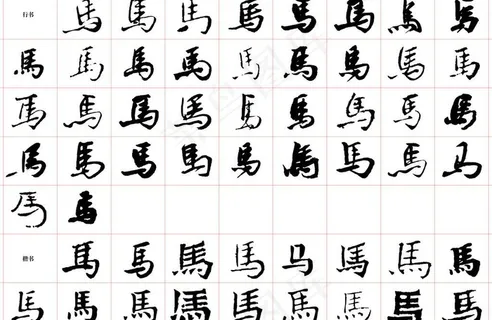 行书 馬 馬 馬 馬 馬 馬 馬 馬
馬 馬 馬 馬 馬 馬 馬 馬 馬
馬 馬 馬 馬 馬 馬 馬 馬 馬
馬 馬 馬 馬 馬 馬 馬 馬 马
馬 馬
楷书 馬 馬 馬 馬 马 馬 馬 馬
馬 馬 馬 馬 馬 馬 馬 馬 馬